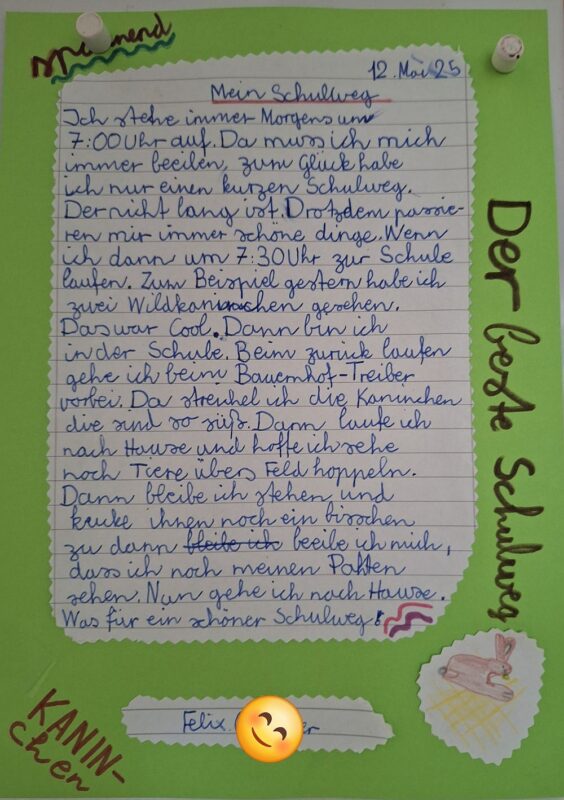 spannend
12. Mai 25
Mein Schulweg
Ich stehe immer Morgens um
7:00 Uhr auf. Da muss ich mich
immer beeilen, zum Glück habe
ich nur einen kurzen Schulweg.
Der nicht lang ist. Drotzdem passie-
ren mir immer schöne dinge. Wenn
ich dann um 7:30 Uhr zur Schule
laufen. Zum Beispiel gestern habe ich
zwei Wildkaninchen gesehen.
Das war Cool. Dann bin ich
in der Schule. Beim zurück laufen
gehe ich beim Bauernhof-Treiber
vorbei. Da streichel ich die Kaninchen
die sind so süß. Dann laufe ich
nach Hause und hoffe ich sehe
noch Tiere übers Feld hoppeln.
Dann bleibe ich stehen und
kucke ihnen noch ein bisschen
zu dann bleibe ich beeile ich mich,
dass ich noch meinen
sehen. Nun gehe ich nach Hause.
Was für ein schöner Schulweg!
Der beste Schulweg
KANIN-
chen
Felix er